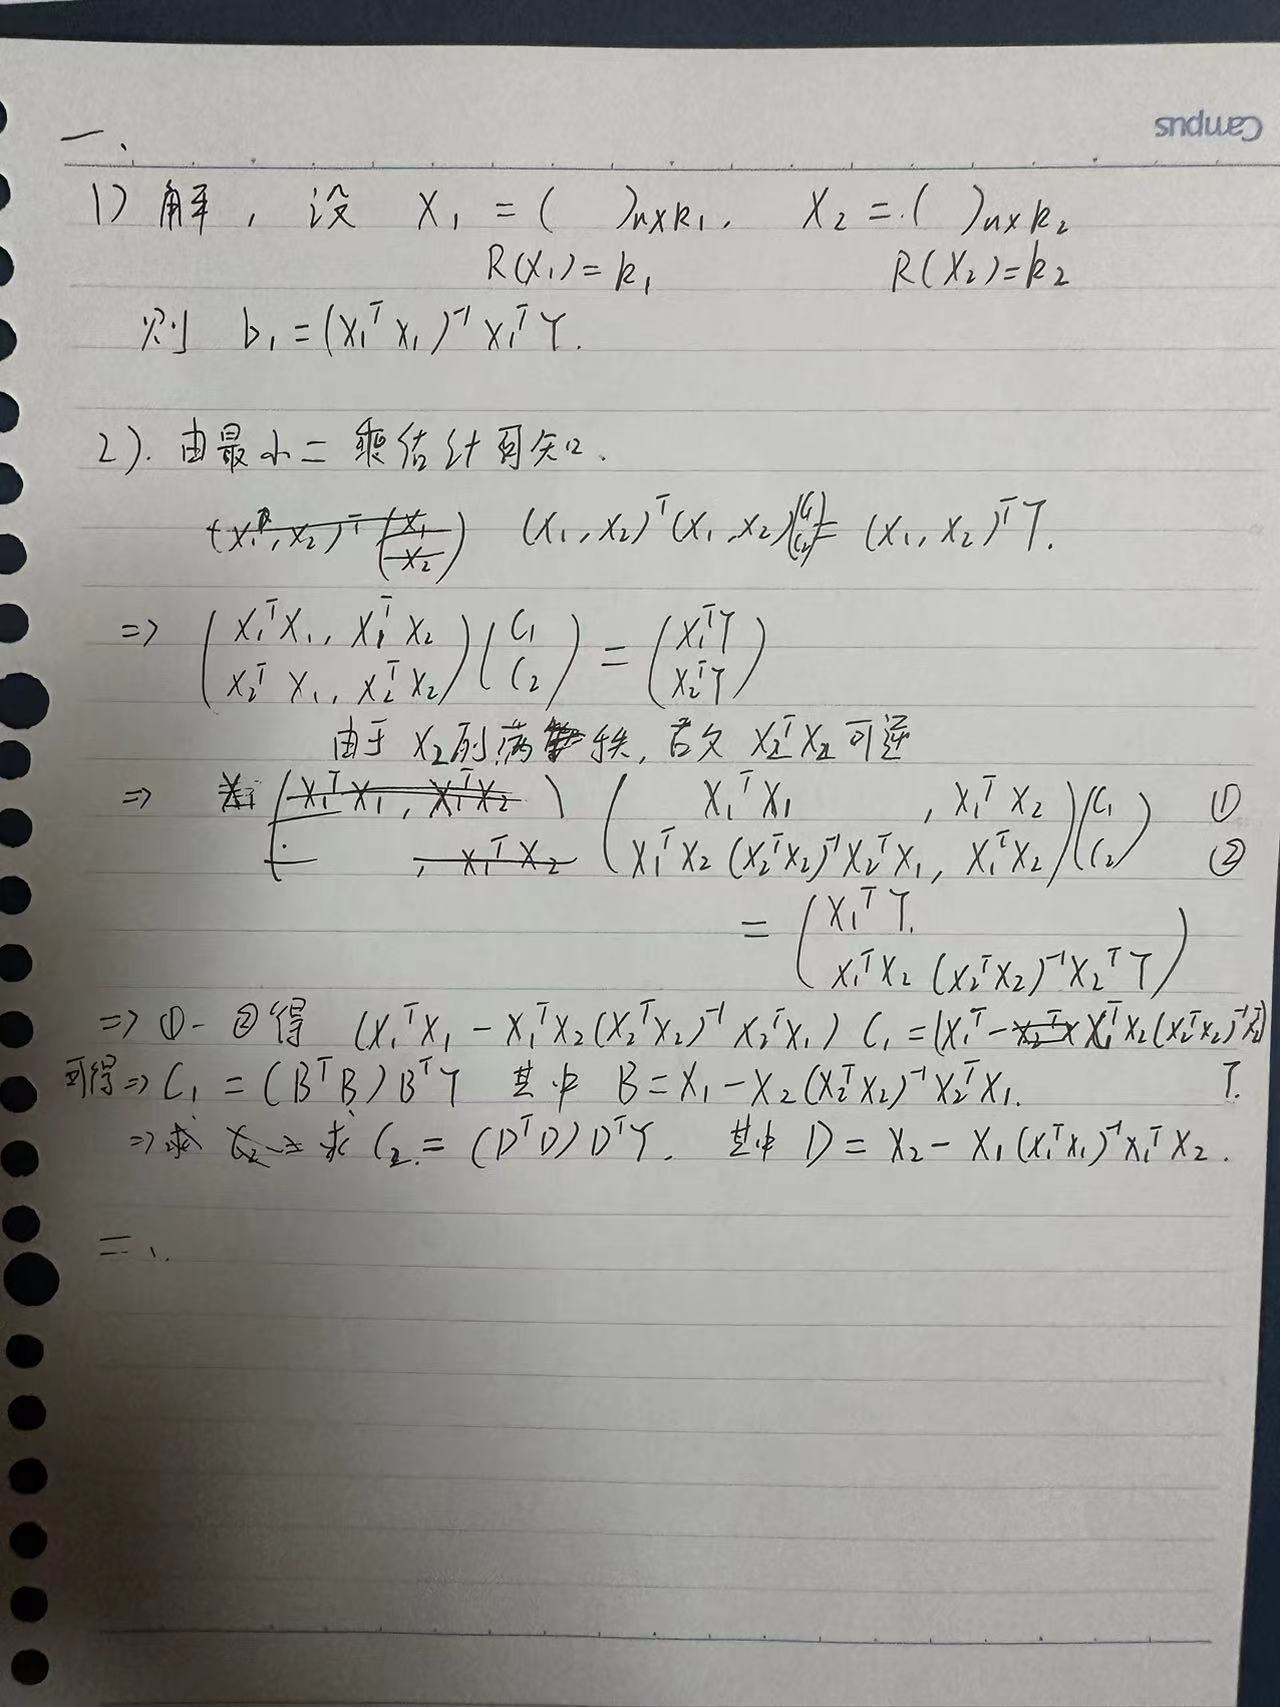 Campus
一、
1) 解, 设 X₁ = ( )n×k₁. X₂ = ( )n×k₂
R(X₁)=k₁ R(X₂)=k₂
则 b₁ = (X₁ᵀX₁)⁻¹X₁ᵀY.
2). 由最小二乘估计可知.
(X₁, X₂)ᵀ(X₁, X₂)(C₁ C₂) = (X₁, X₂)ᵀY.
=> (X₁ᵀX₁, X₁ᵀX₂ ; X₂ᵀX₁, X₂ᵀX₂)(C₁ ; C₂) = (X₁ᵀY ; X₂ᵀY)
由于 X₂列满秩, 故 X₂ᵀX₂可逆
=> (X₁ᵀX₁, X₁ᵀX₂ ; X₁ᵀX₂(X₂ᵀX₂)⁻¹X₂ᵀX₁, X₁ᵀX₂)(C₁ ; C₂) ① ②
= (X₁ᵀY. ; X₁ᵀX₂(X₂ᵀX₂)⁻¹X₂ᵀY)
=> ①-②得 (X₁ᵀX₁ - X₁ᵀX₂(X₂ᵀX₂)⁻¹X₂ᵀX₁) C₁ = (X₁ᵀ - X₁ᵀX₂(X₂ᵀX₂)⁻¹X₂ᵀ) Y.
可得=> C₁ = (BᵀB)BᵀY 其中 B = X₁ - X₂(X₂ᵀX₂)⁻¹X₂ᵀX₁.
=> 求 C₂ = (DᵀD)DᵀY. 其中 D = X₂ - X₁(X₁ᵀX₁)⁻¹X₁ᵀX₂.
二、